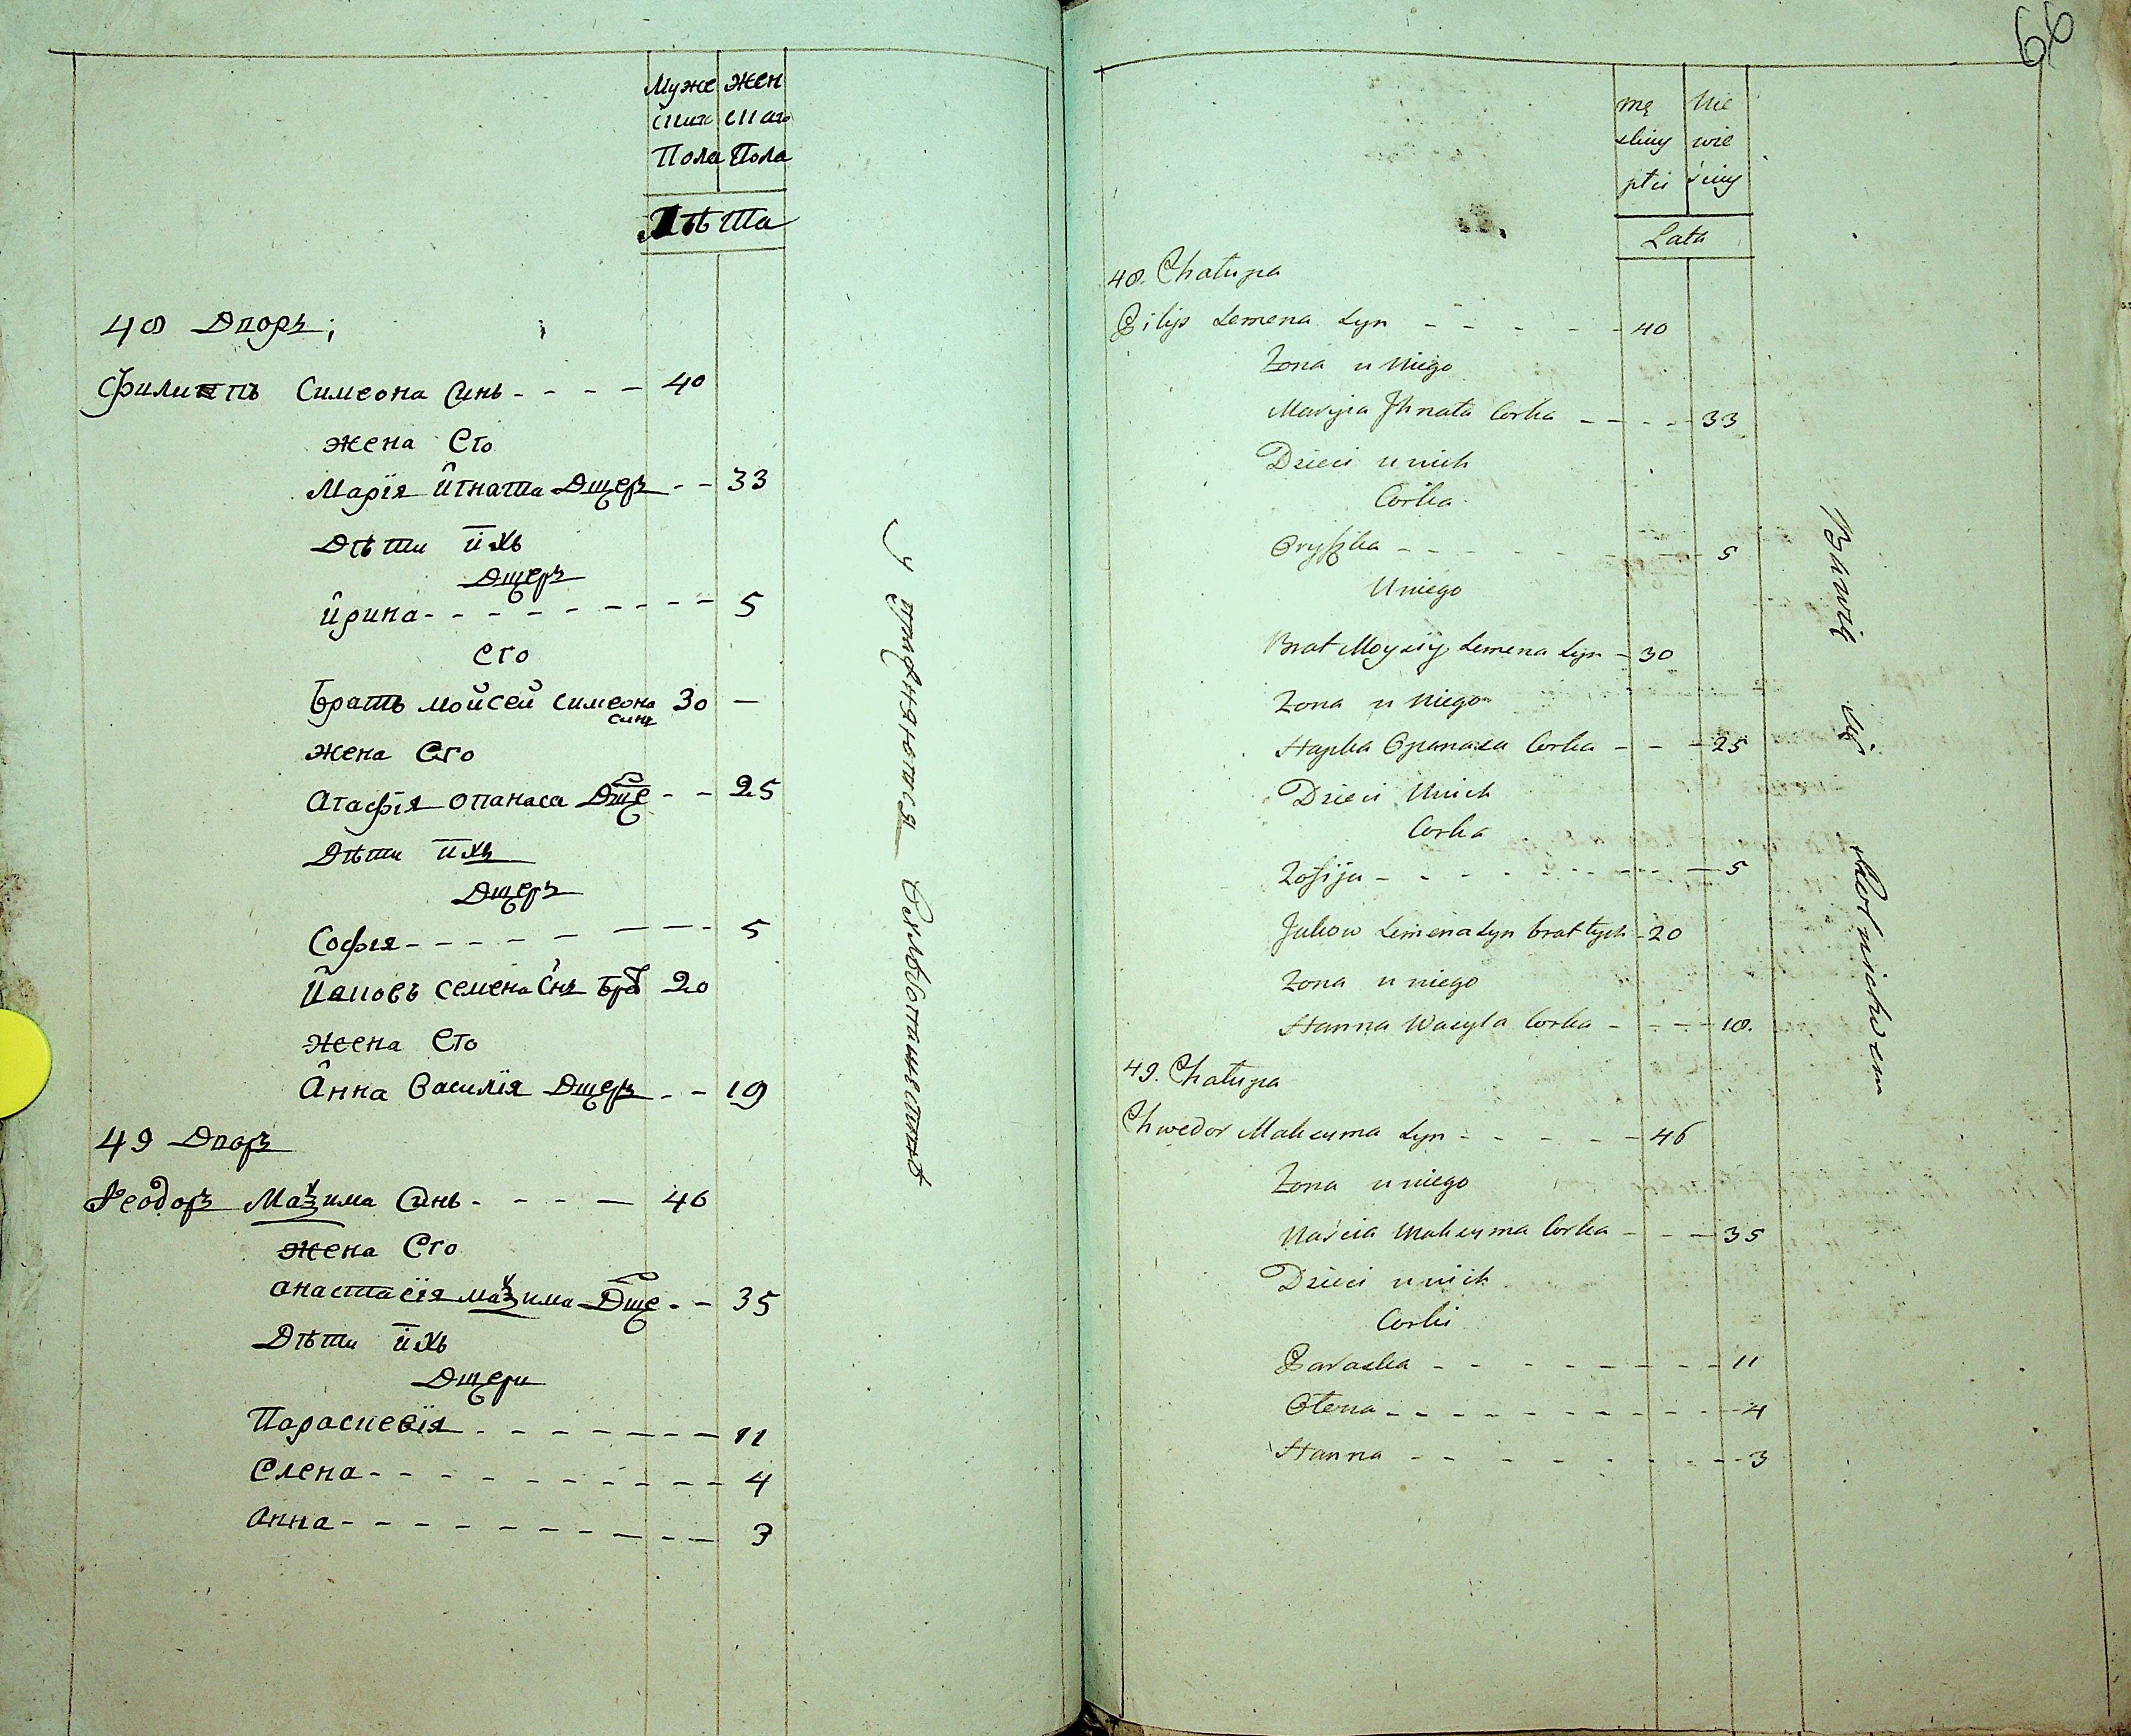 Муже Жен
скаго скаго
Пола Пола
Лѣта
48 Дворъ;
Филиппъ Симеона Синь - - - - 40
Жена Его
Марїя Игната Дщеръ - - 33
Дѣти ихъ
Дщеръ
Ирина - - - - - - - - - 5
Его
Братъ Мойсей Симеона синъ 30 —
Жена Его
Агафїя Опанаса Дще - - 25
Дѣти ихъ
Дщеръ
Софія - - - - - - - - 5
Иаковъ Семена Снъ Бра 20
Жена Его
Анна Василїя Дщеръ - - 19
49 Дворъ
Ѳеодоръ Маѯима Синь - - - - 46
Жена Его
Анастасїя Маѯима Дще - - 35
Дѣти ихъ
Дщери
Параскевїя - - - - - - - 11
Елена - - - - - - - - - - 4
Анна - - - - - - - - - - 3
Упражняются
66
mę Nie
skiey wie
płci ściey
Lata
48. Chałupa
Pilip Semena Syn - - - - - 40
Zona u Niego
Maryia Ihnata Corka - - - - 33
Dzieci u nich
Corka
Oryszka - - - - - - - 5
U niego
Brat Moysiy Semena Syn - 30
Zona u Niego
Hapka Opanasa Corka - - - 25
Dzieci U nich
Corka
Zofija - - - - - - - - - - 5
Jakow Semena Syn brat tych - 20
Zona u niego
Hanna Wasyla Corka - - - - 18.
49. Chałupa
Chwedor Maksyma Syn - - - - - 46
Zona u niego
Naścia Maksyma Corka - - - 35
Dzieci u nich
Corki
Paraska - - - - - - - - - 11
Ołena - - - - - - - - - - - 4
Hanna - - - - - - - - - 3
Bawią się Rolnictwem